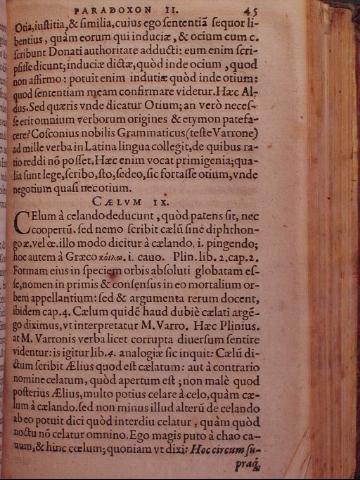 PARADOXON II. 45
Otia, iustitia, & similia, cuius ego sententiã sequor li-
bentius, quàm eorum qui induciæ, & ocium cum c.
scribunt Donati authoritate adducti: eum enim scri-
psisse dicunt; induciæ dictæ, quòd inde ocium, quod
non affirmo: potuit enim indutiæ quòd inde otium:
quod sententiam meam confirmare videtur. Hæc Al-
dus. Sed quæris vnde dicatur Otium; an verò neces-
se erit omnium verborum origines & etymon patefa-
cere? Cosconius nobilis Grammaticus (teste Varrone)
ad mille verba in Latina lingua collegit, de quibus ra-
tio reddi nõ posset. Hæc enim vocat primigenia; qua-
lia sunt lege, scribo, sto, sedeo, sic fortasse otium, vnde
negotium quasi necotium.
CÆLVM IX.
CElum à celando deducunt, quòd patens sit, nec
coopertũ. sed nemo scribit cælũ sine diphthon-
go æ. vel œ. illo modo dicitur à cælando. i. pingendo;
hoc autem à Græco κοίλω. i. cauo. Plin. lib. 2. cap. 2.
Formam eius in speciem orbis absoluti globatam es-
se, nomen in primis & consensus in eo mortalium or-
bem appellantium: sed & argumenta rerum docent,
ibidem cap. 4. Cælum quidẽ haud dubiè cælati argẽ-
to diximus, vt interpretatur M. Varro. Hæc Plinius.
at M. Varronis verba licet corrupta diuersum sentire
videntur: is igitur lib. 4. analogiæ sic inquit: Cælũ di-
ctum scribit Ælius quod est cælatum: aut à contrario
nomine celatum, quòd apertum est; non malè quod
posterius Ælius, multo potius celare à celo, quàm cæ-
lum à cælando. sed non minus illud alterũ de celando
ab eo potuit dici quòd interdiu celatur, quàm quòd
noctu nõ celatur omnino. Ego magis puto à chao ca-
uum, & hinc cœlum; quoniam vt dixi: Hoc circum su-
praq́;